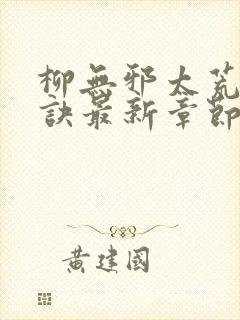 柳無邪太荒
訣最新章節
黃建國